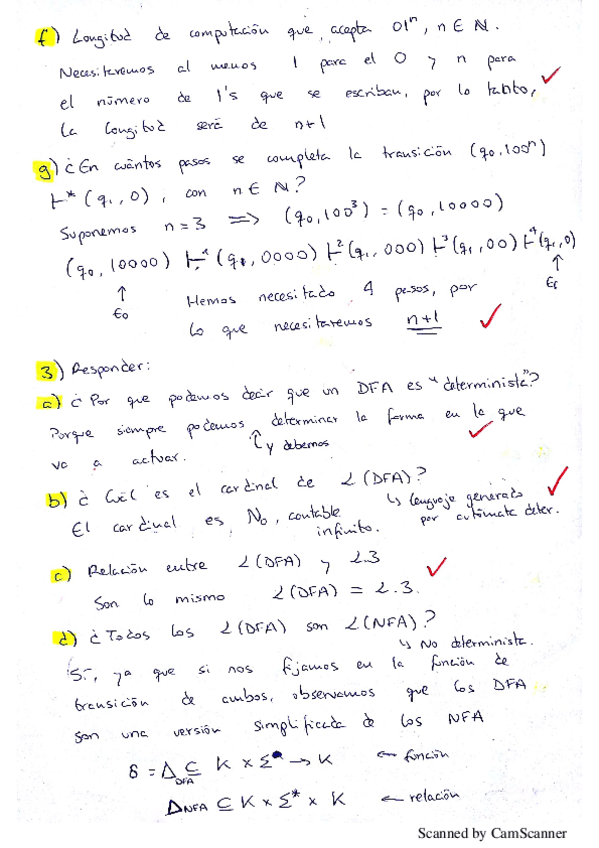 f) Longitud de computación que acepta 01ⁿ, n ∈ ℕ.
Necesitaremos al menos 1 para el 0 y n para
el número de 1's que se escriban, por lo tanto,
la longitud será de n+1
g) ¿En cuántos pasos se completa la transición (q₀,100ⁿ)
⊢* (q₁,0), con n ∈ ℕ?
Suponemos n=3 => (q₀,100³) = (q₀,10000)
(q₀,10000) ⊢¹ (q₀,0000) ⊢² (q₁,000) ⊢³ (q₁,00) ⊢⁴ (q₁,0)
↑ ↑
Hemos necesitado 4 pasos, por
lo que necesitaremos n+1
3) Responder:
a) ¿Por que podemos decir que un DFA es "determinista"?
Porque siempre podemos determinar la forma en la que
y debemos
va a actuar.
b) ¿Cuál es el cardinal de L(DFA)?
↳ Lenguaje generado
por autómata deter.
El cardinal es ℵ₀, contable
infinito.
c) Relación entre L(DFA) y L.3
Son lo mismo L(DFA) = L.3.
d) ¿Todos los L(DFA) son L(NFA)?
↳ No determinista.
Sí, ya que si nos fijamos en la función de
transición de ambos, observamos que los DFA
son una versión simplificada de los NFA
δ = Δ_DFA ⊆ K × Σ → K ← función
Δ_NFA ⊆ K × Σ* × K ← relación
Scanned by CamScanner